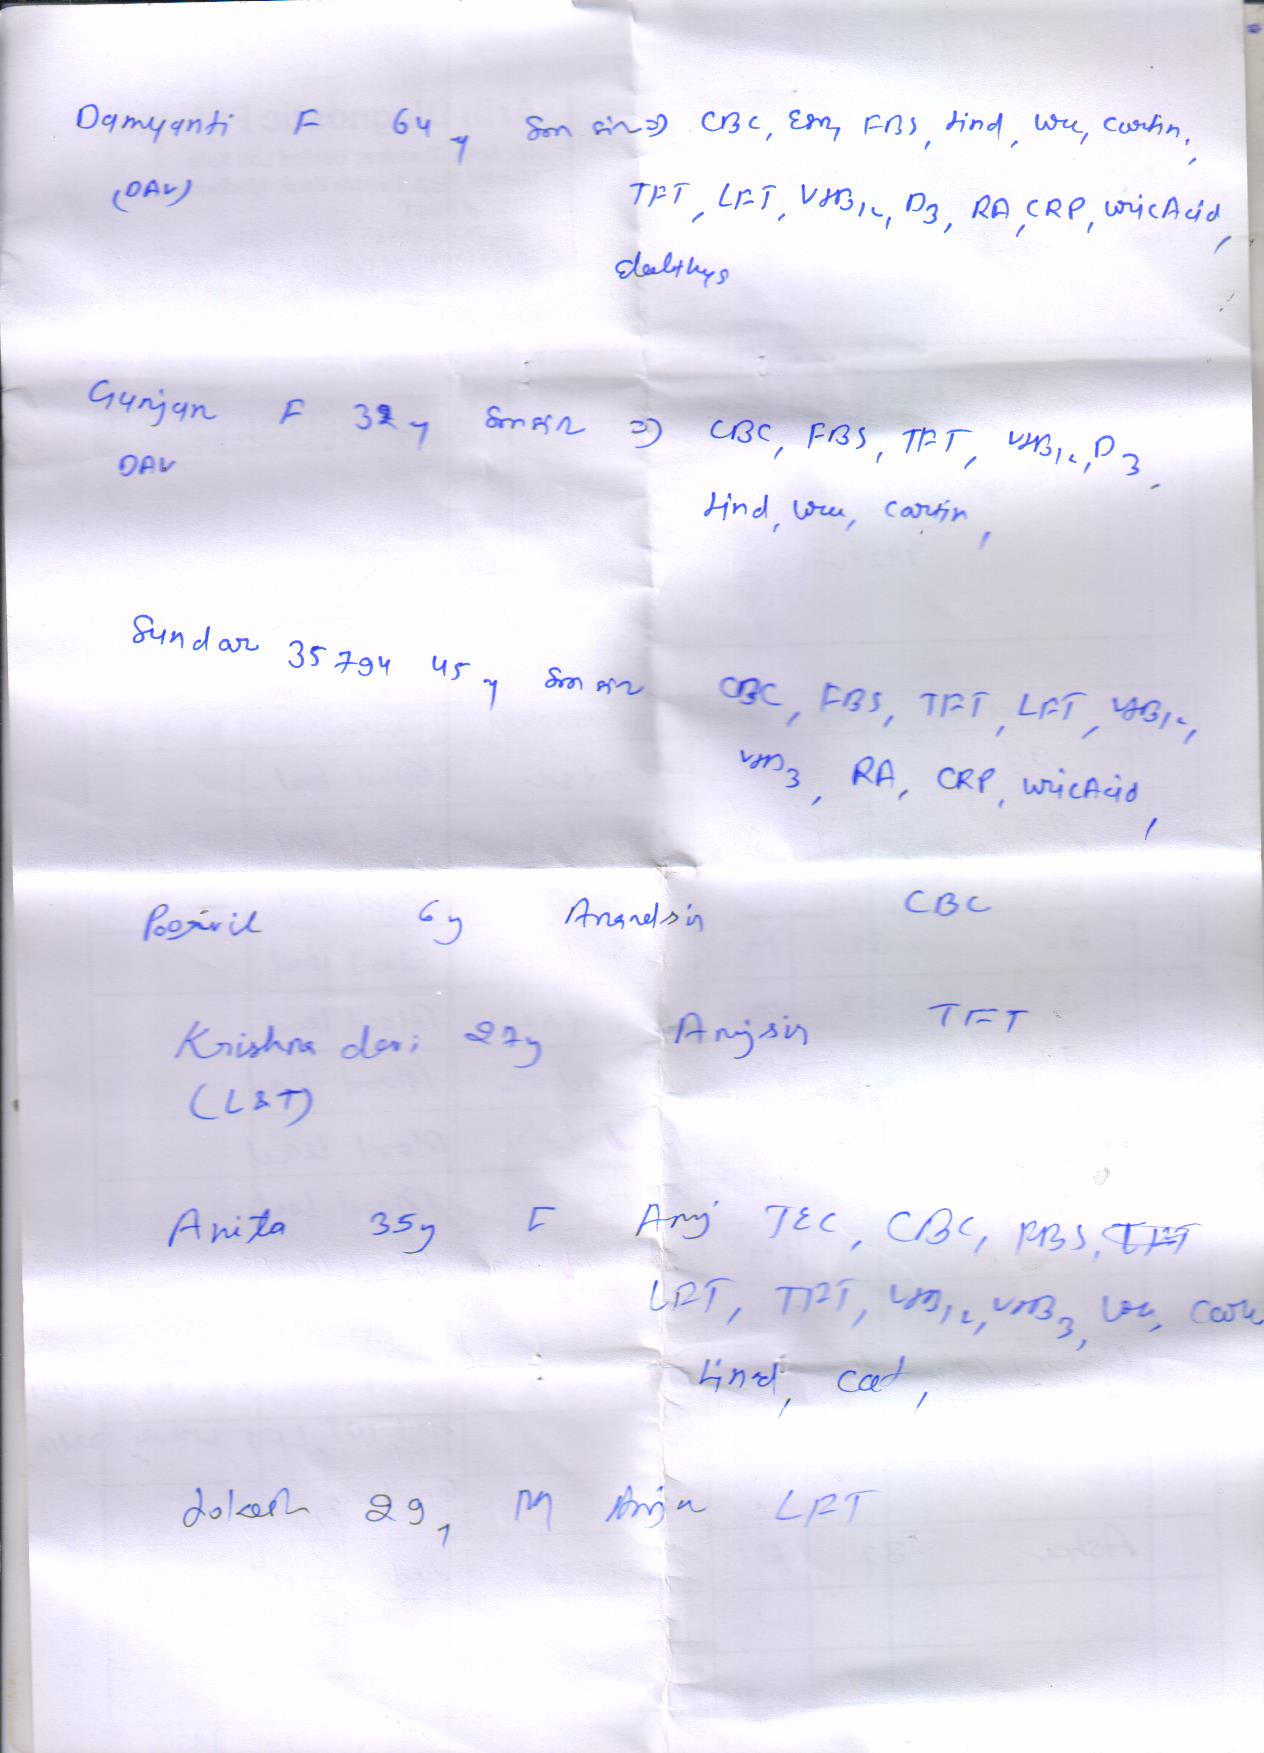 Damyanti F 64 y Som sir => CBC, ESR, FBS, Lipid, Uree, Creatin,
(DAV) TFT, LFT, VitB12, D3, RA, CRP, Uric Acid,
Gunjan F 32 y Som sir => CBC, FBS, TFT, VitB12, D3,
DAV
Lipid, Uree, Creatin,
Sundar 35794 45 y Som sir CBC, FBS, TFT, LFT, VitB12,
VitD3, RA, CRP, Uric Acid,
6y Anand sir CBC
Krishna devi 27y Anuj sir TFT
(L&T)
Anita 35y F Anuj TEC, CBC, RBS,
LFT, TFT, VitB12, VitB3,
Lipid,
Lokesh 29, M LFT